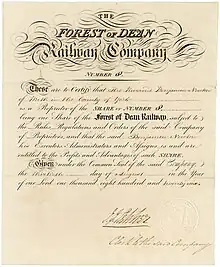 THE
FOREST OF DEAN
Railway Company
NUMBER 8
These are to Certify that
of in the County of York
is a Proprietor of the SHARE or NUMBER 8
being one Share of the Forest of Dean Railway, subject to
the Rules, Regulations and Orders of the said Company
Proprietors, and that the said Benjamin
his Executors Administrators and Assigns, is and are
entitled to the Profits and Advantages of such SHARE.
Given under the Common Seal of the said Company
the day of August in the Year
of our lord one thousand eight hundred and
Clerk to the said Company